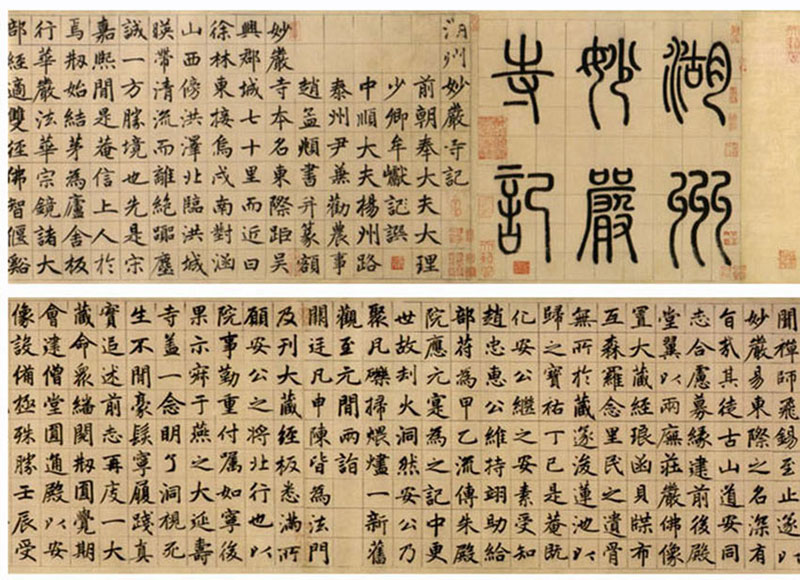 湖州
妙嚴
寺記
湖州妙嚴寺記
前朝奉大夫大理
少卿牟巘記譔
中順大夫揚州路
泰州尹兼勸農事
趙孟頫書并篆額
妙嚴寺本名東際距吳
興郡城七十里而近曰
徐林東接烏戍南對涵
山西傍洪澤北臨洪城
暎帶清流而離絕躧塵
誠一方勝境也先是宋
嘉熙間是菴信上人於
焉刱始結茅為廬舍板
行華嚴法華宗鏡諸大
部經適雙徑佛智偃谿
聞禪師飛錫至止遂以
妙嚴易東際之名深有
旨哉其徒古山道安同
志合慮募緣建前後殿
堂翼以兩廡莊嚴佛像
置大藏經琅函貝牒布
互森羅念里民之遺骨
無所於藏遂浚蓮池以
歸之寶祐丁巳是菴既
化安公繼之安素受知
趙忠惠公維持翊助給
部苻為甲乙流傳朱殿
院應元寔為之記中更
世故刦火洞然安公乃
聚瓦礫掃煨燼一新舊
觀至元間兩詣
闕廷凡申陳皆為法門
及刊大藏經板悉滿所
願安公之將北行也以
院事勤重付囑如寧後
果示寂于燕之大延壽
寺蓋一念明了洞視死
生不間豪髮寧履踐真
實追述前志再庋一大
藏命衆繙閱刱圓覺期
會建僧堂圓通殿以安
像設備極殊勝壬辰受